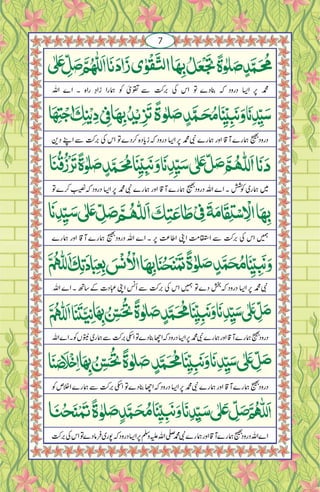 7
مُحَمَّدٍ صَلٰوةً تَجْعَلُ بِهَا التَّقْوٰى زَادَنَا اَللّٰهُمَّ صَلِّ عَلٰى
محمد پر ایسا درود کہ بنادے تو اس کی برکت سے تقویٰ کو ہمارا زادِ راہ ۔ اے اللہ
سَيِّدِنَا وَنَبِيِّنَا مُحَمَّدٍ صَلٰوةً تَزِيْدُ بِهَا فِيْ دِيْنِكَ
درود بھیج ہمارے آقا اور ہمارے نبی محمد پر ایسا درود کہ زیادہ کردے تو اس کی برکت سے اپنے دین
اَللّٰهُمَّ صَلِّ عَلٰى سَيِّدِنَا وَنَبِيِّنَا مُحَمَّدٍ صَلٰوةً تَرْزُقُنَا
میں ہماری کوشش ۔ اے اللہ درود بھیج ہمارے آقا اور ہمارے نبی محمد پر ایسا درود کہ نصیب کرے تو
بِهَا الْاِسْتِقَامَةَ فِيْ طَاعَتِكَ اَللّٰهُمَّ صَلِّ عَلٰى سَيِّدِنَا
ہمیں اس کی برکت سے استقامت اپنی اطاعت پر ۔ اے اللہ درود بھیج ہمارے آقا اور ہمارے
وَنَبِيِّنَا مُحَمَّدٍ صَلٰوةً تَمْنَحُنَا بِهَا الْاُنْسَ بِعِبَادَتِكَ اَللّٰهُمَّ
نبی محمد پر ایسا درود کہ بخش دے تو ہمیں اس کی برکت سے اُنس اپنی عبادت کے ساتھ ۔ اے اللہ
صَلِّ عَلٰى سَيِّدِنَا وَنَبِيِّنَا مُحَمَّدٍ صَلٰوةً تُحَسِّنُ بِهَا نِيَّاتِنَا اَللّٰهُمَّ
درود بھیج ہمارے آقا اور ہمارے نبی محمد پر ایسا درود کہ اچھا بنادے تو اسکی برکت سے ہماری نیتوں کو ۔ اے اللہ
صَلِّ عَلٰى سَيِّدِنَا وَنَبِيِّنَا مُحَمَّدٍ صَلٰوةً تُحَسِّنُ بِهَا اَخْلَاصَنَا
درود بھیج ہمارے آقا اور ہمارے نبی محمد پر ایسا درود کہ اچھا بنادے تو اسکی برکت سے ہمارے اخلاص کو
اَللّٰهُمَّ صَلِّ عَلٰى سَيِّدِنَا وَنَبِيِّنَا مُحَمَّدٍ صَلٰوةً تَمْنَحُنَا
اے اللہ درود بھیج ہمارے آقا اور ہمارے نبی محمد صلی اللہ علیہ وسلم پر ایسا درود کہ پوری فرمادے تو اس کی برکت